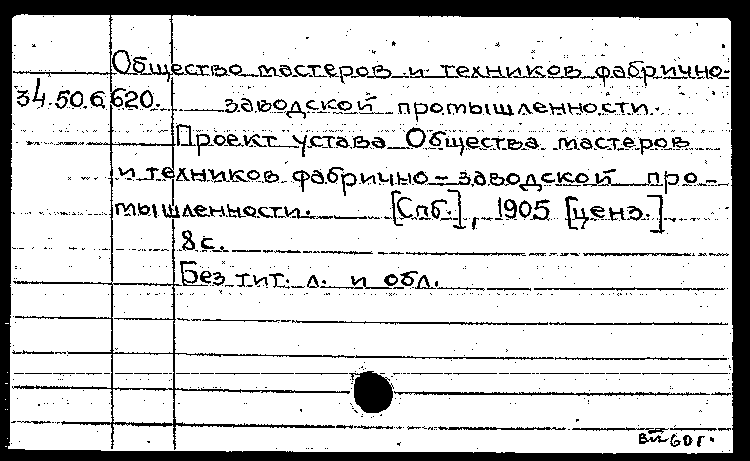 Общество мастеров и техников фабрично-
34.50.6.620. заводской промышленности.
Проект устава Общества мастеров
и техников фабрично-заводской про-
мышленности. [Спб.], 1905 [ценз.].
8 с.
Без тит. л. и обл.